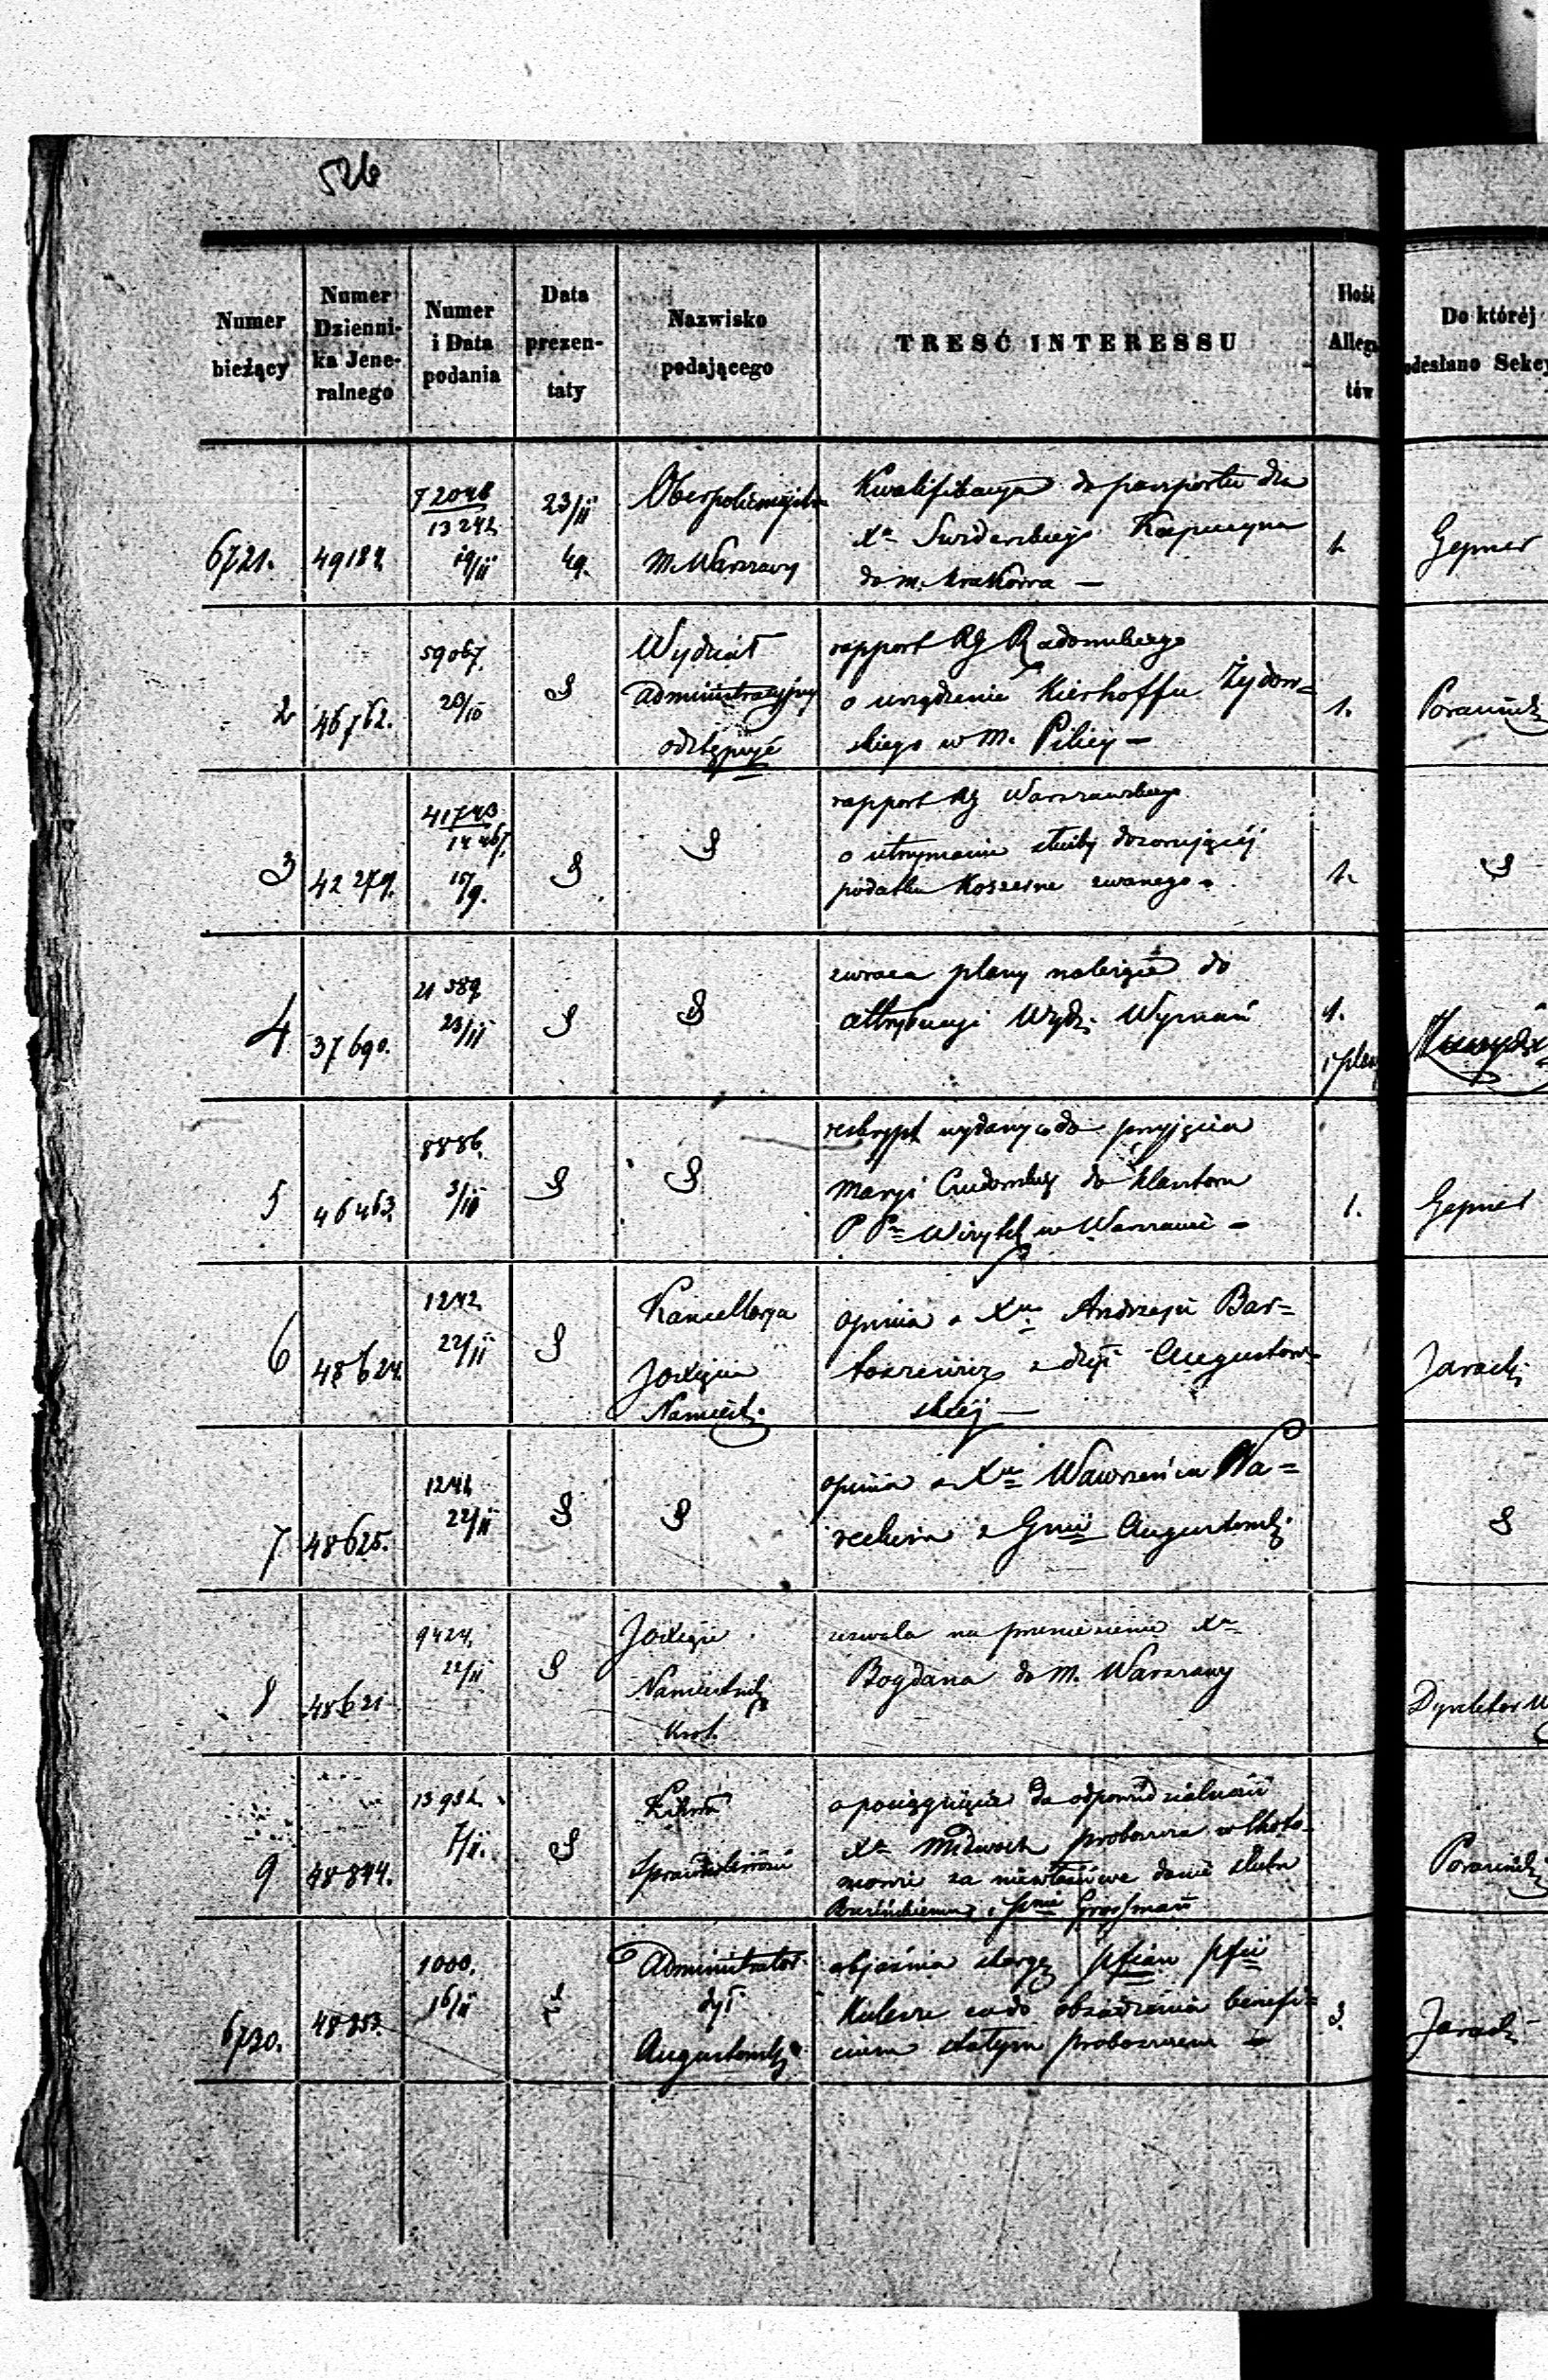 526
Numer bieżący
Numer Dzienni-ka Jene-ralnego
Numer i Data podania
Data prezen-taty
Nazwisko podającego
TREŚĆ INTERESSU
Ilość Allega tów
Do któréj odesłano Sekcy
6721.
49184
72048
13242
19/II
23/II
49.
Oberpolicmajster
M. Warszawy
Kwalifikacya do passportu dla
Xa Swiderskiego Kapucyna
do m. Krakowa —
1.
Gepner
2
46762.
59067.
20/10
Wydział
administracyjny
odstępuje
rapport RG Radomskiego
o urządzenie Kierhoffu Żydow=
skiego w M. Pilicy —
1.
3
42279.
41743
14467.
15/9.
rapport RG Warszawskiego
o utrzymanie służby dozorującéj
podatku Koszerne zwanego.
1.
4
37690.
21389
23/II
zwraca plany należące do
attrybucyi Wydz. Wyznań
1.
i plany
5
46463.
8886.
3/10
reskrypt wydany co do przyjęcia
Maryi do klasztoru
P Pn Wizytek w Warszawie —
1.
Gepner
6
48624.
1242
22/II
Kancellarya
JOXięcia
Namiest.
opinia o Xu Andrzeju Bar=
toszewicz z dyec Augustow=
skiéj —
Jaracki
7
48625.
1241
22/II
opinia o Xu Wawrzeńcu Wa=
z Gnii Augustowsk.
8
48621
9424.
22/II
JOXiąże
Namiestnik
Król.
zezwala na przeniesienie Xa
Bogdana do M. Warszawy
Dyrektor
9
48844.
13932.
7/II.
Kikom
Sprawiedliwości
o pociągnięcie do odpowiedzialności
Xa proboszcza w
za niewłaściwe danie ślubu
i Pnie Grossmann
6730.
48353.
1000.
16/II
Administrator
dyec
Augustowsk.
objaśnia skargę pfian pfii
co do obsadzenia benefi=
cium stałym proboszczem —
3.
Jaracki